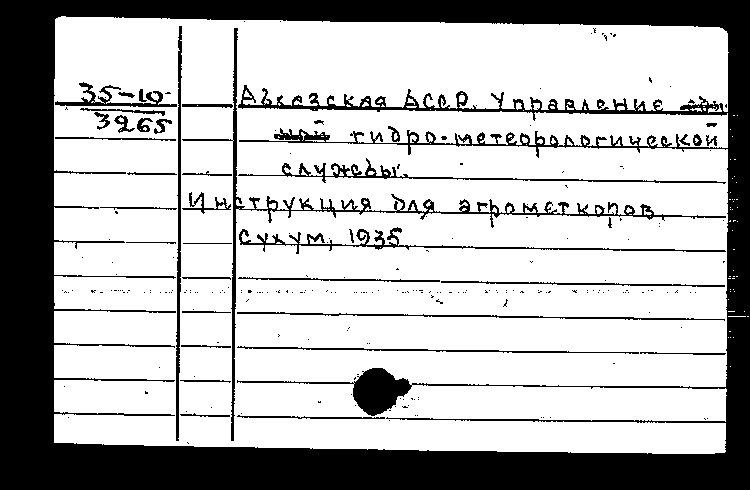 35-10
3265
Абхазская АССР. Управление
гидро-метеорологической
службы.
Инструкция для агрометкоров.
Сухум, 1935.